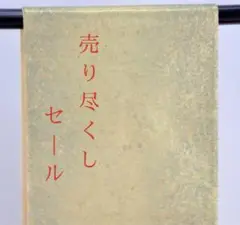 売り尽くし
セール